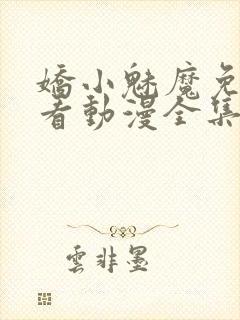 嬌小魅魔免
看動漫全集
雲非墨